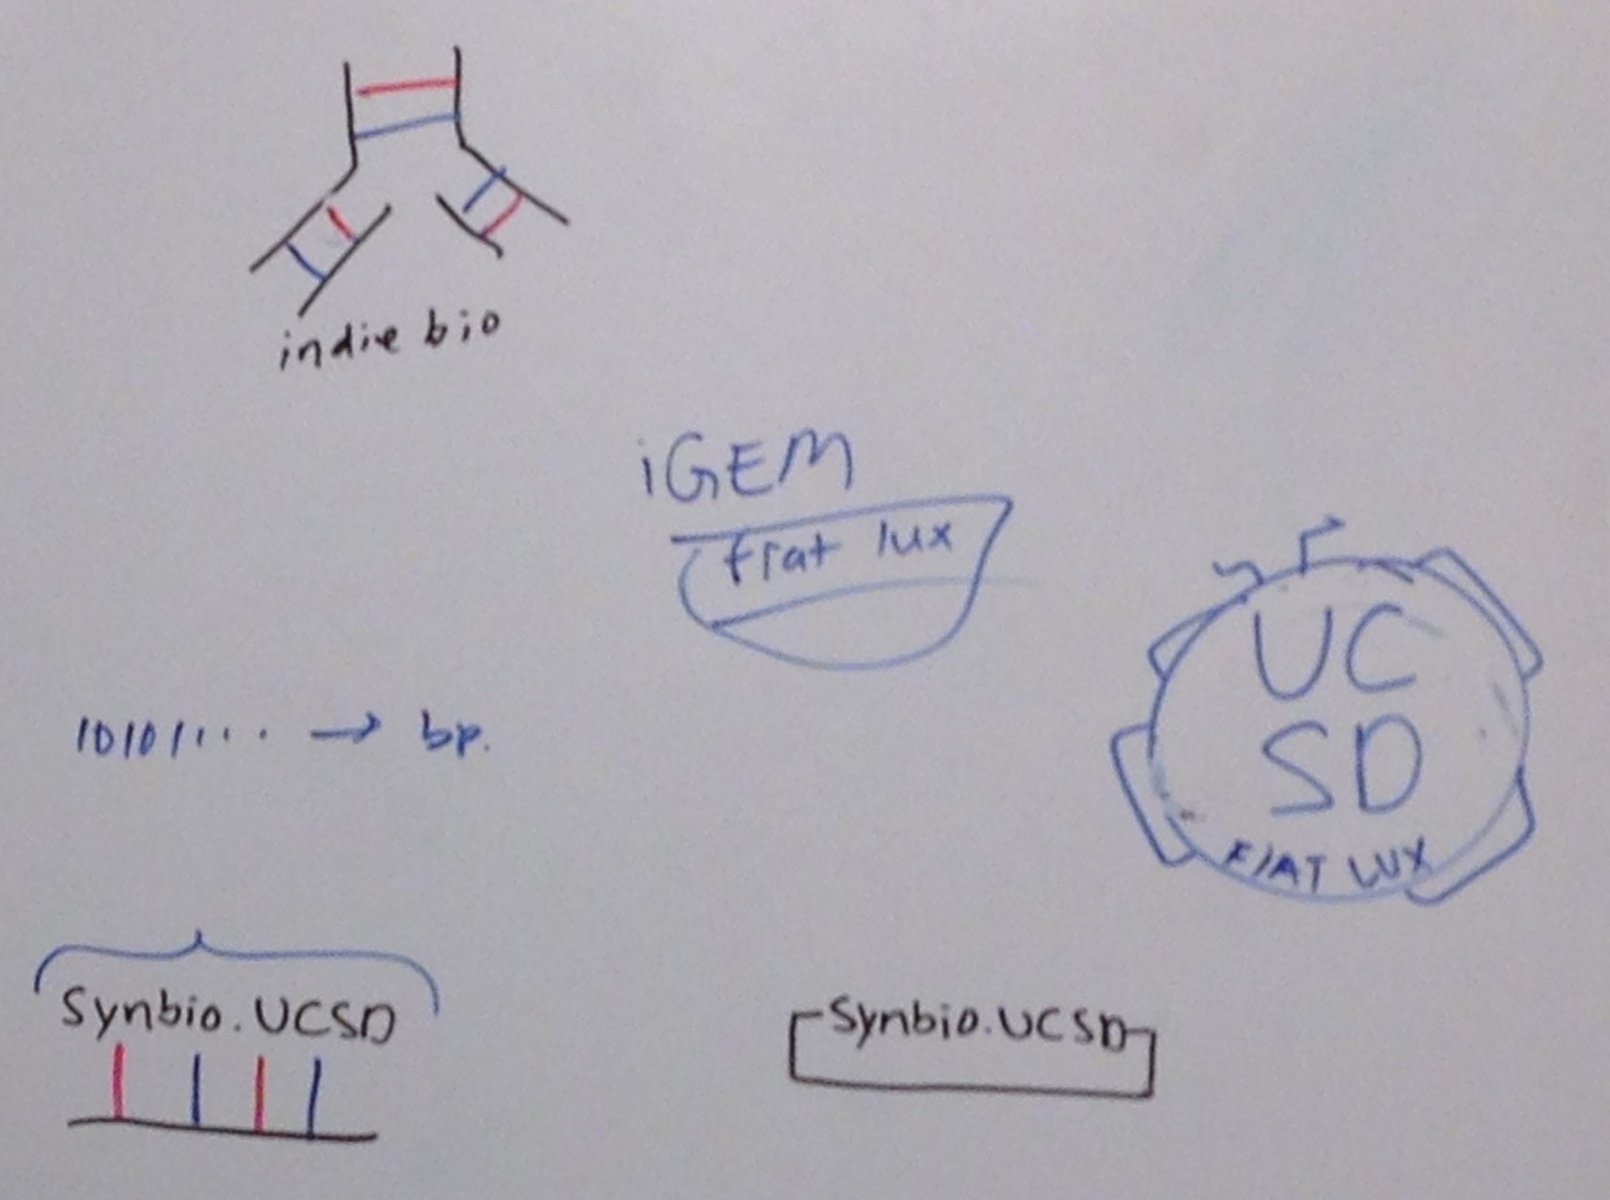 indie bio
iGEM
fiat lux
UC
SD
FIAT LUX
10101... → bp.
Synbio.UCSD
Synbio.UCSD